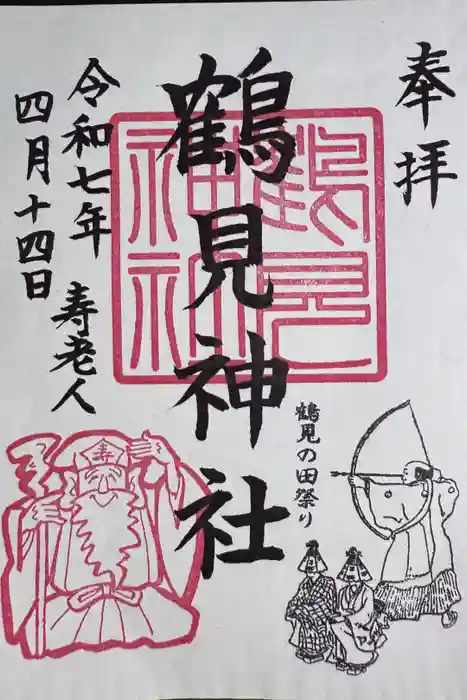 奉拝
鶴見神社
鶴見神社
鶴見の田祭り
令和七年
寿老人
四月十四日
寿